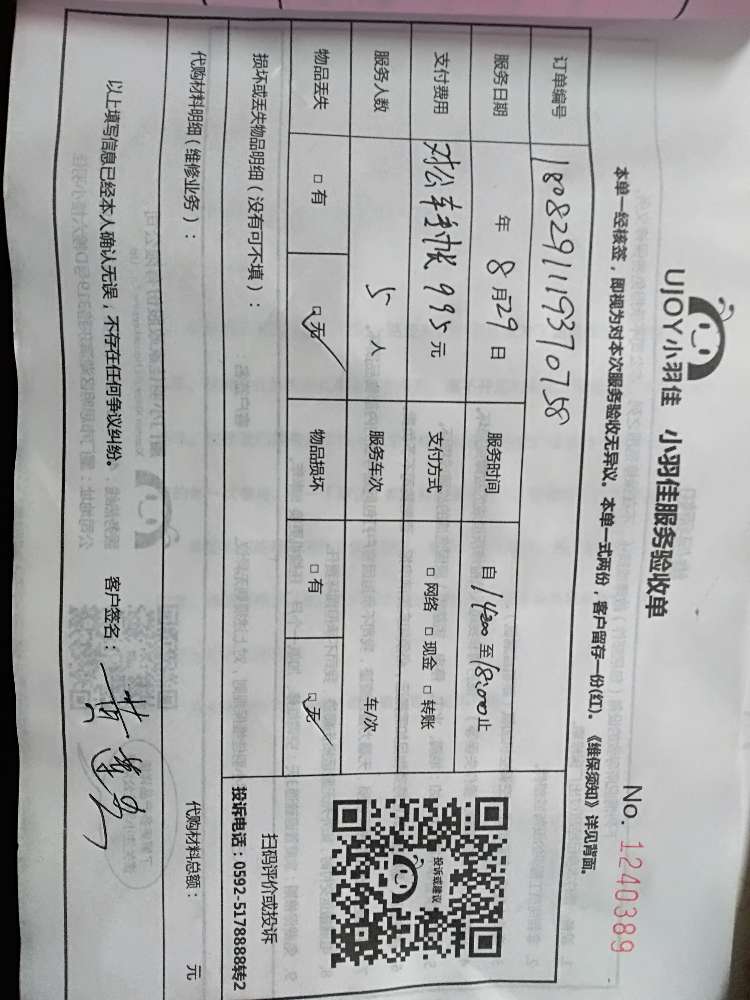 UJOY小羽佳 小羽佳服务验收单
No. 1240389
本单一经核签，即视为对本次服务验收无异议。本单一式两份，客户留存一份(红)。《维保须知》详见背面。
订单编号 1808291119370758
服务日期 年 8月29日 服务时间 自14:00至18:00止
支付费用 对公 995元 支付方式 □网络 □现金 □转账
服务人数 5人 服务车次 车/次
物品丢失 □有 □无 物品损坏 □有 □无
损坏或丢失物品明细（没有可不填）：
投诉或建议
扫码评价或投诉
投诉电话：0592-5178888转2
代购材料明细（维修业务）： 代购材料总额： 元
以上填写信息已经本人确认无误，不存在任何争议纠纷。 客户签名：